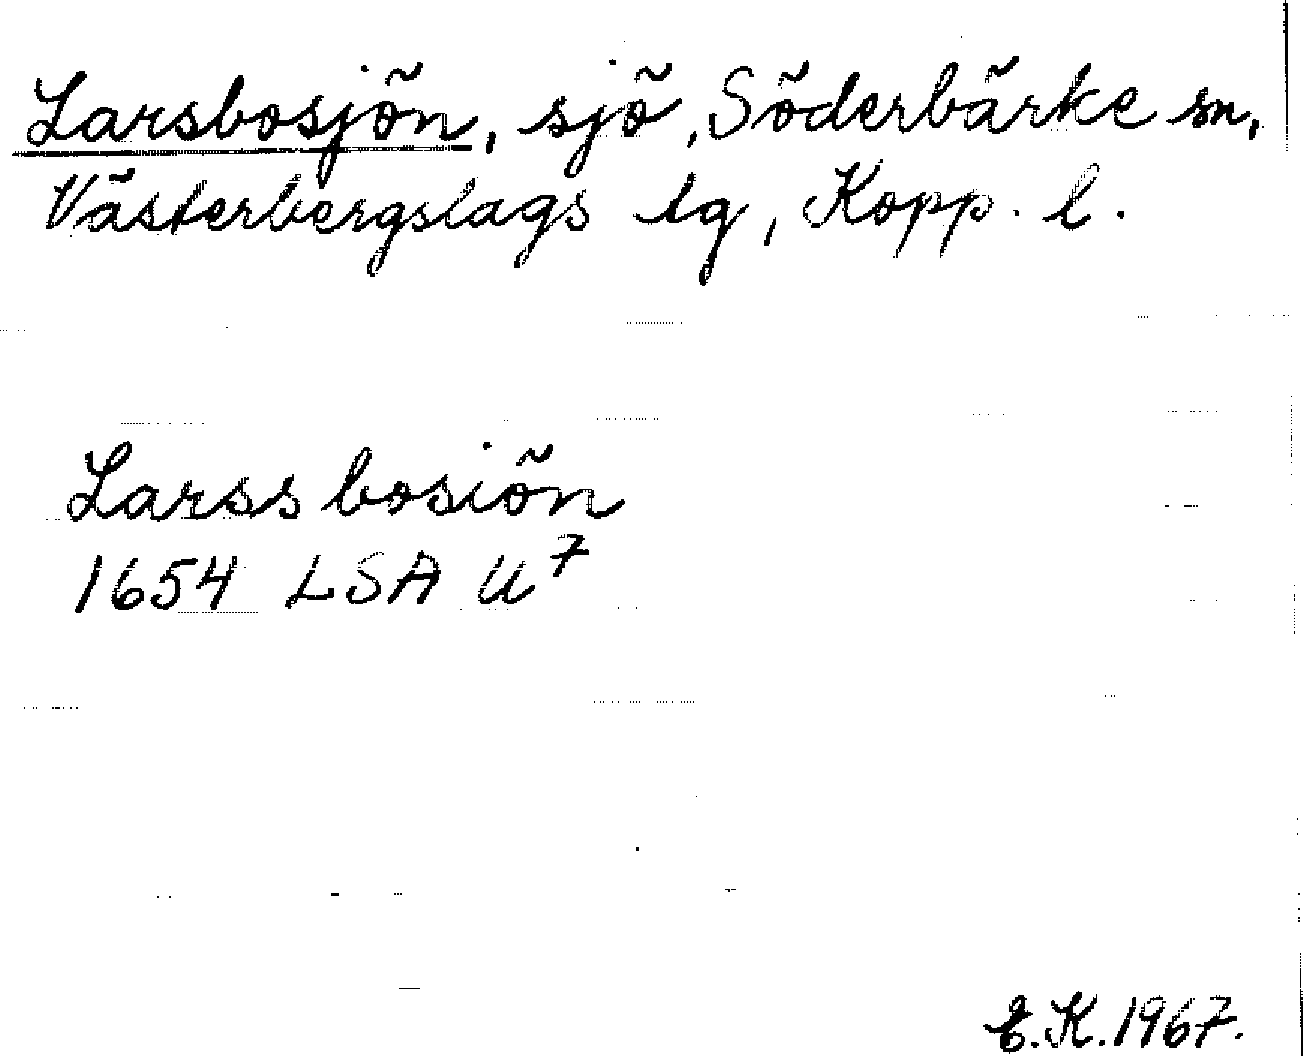 Larsbosjön, sjö, Söderbärke sn,
Västerbergslags tg, Kopp. l.
Larssbosiön
1654 LSA U7
E.K. 1967.